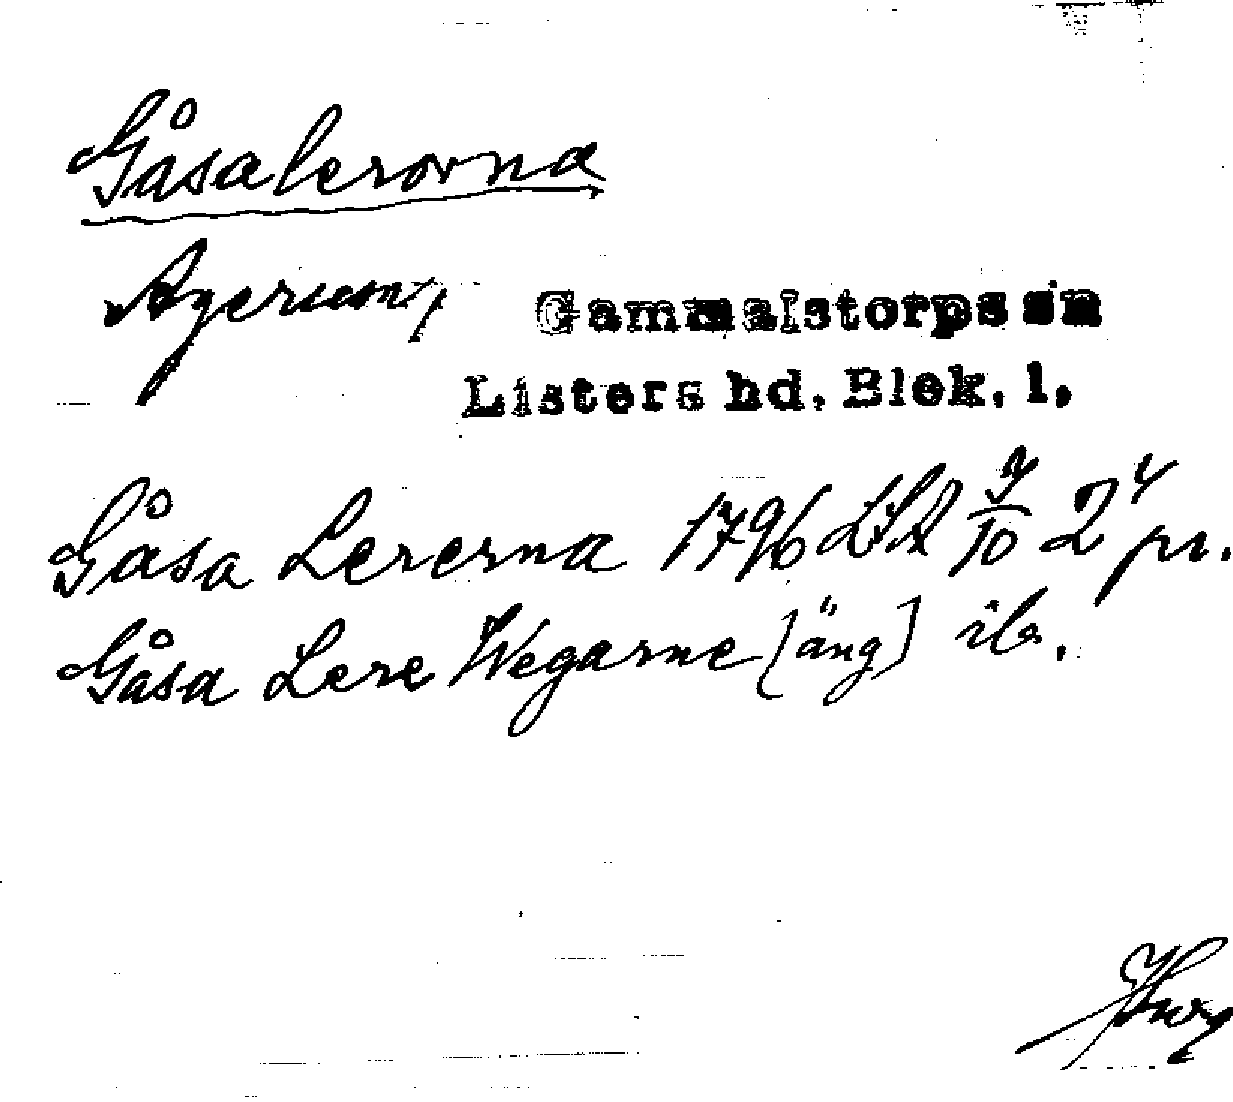 Gåsalerorna
Agerum,
Gammalstorps sn
Listers hd. Blek. l.
Gåsa Lererna 1796 7/10 2 pr.
Gåsa Lere Wegarne [äng] ib.